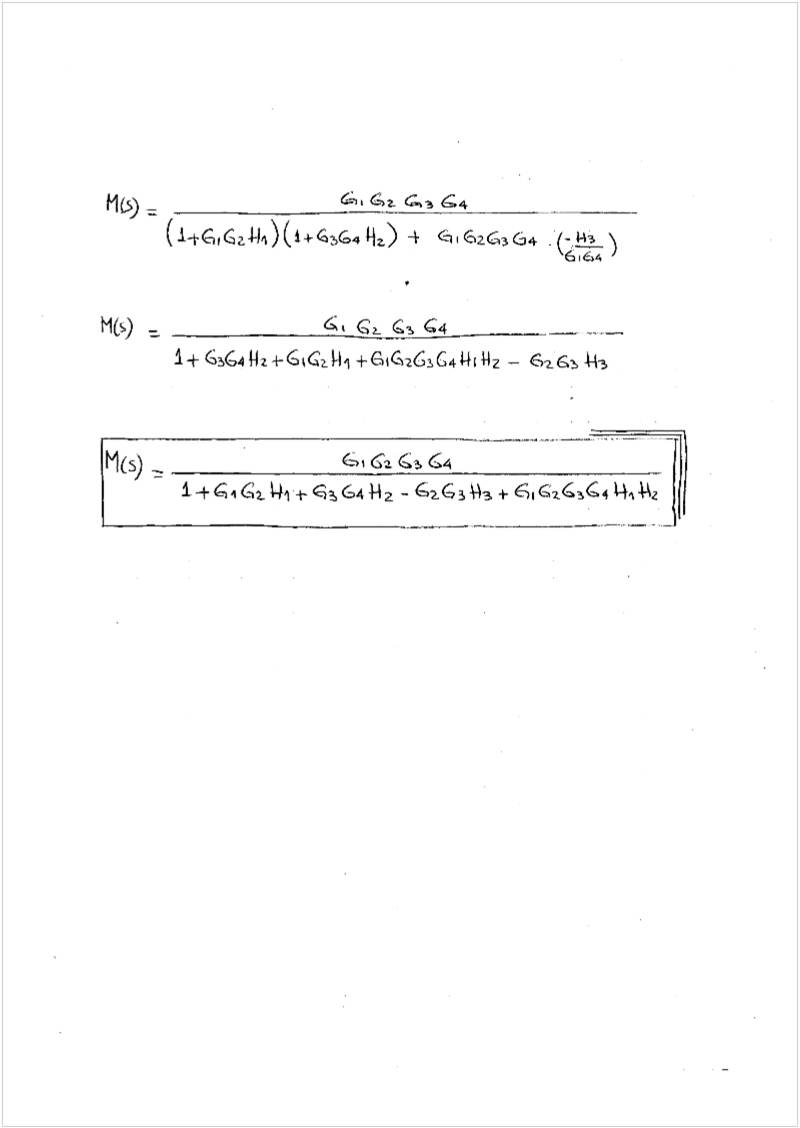 M(s) = G1 G2 G3 G4 / (1+G1G2H1)(1+G3G4H2) + G1G2G3G4 · (-H3/G1G4)
M(s) = G1 G2 G3 G4 / 1+G3G4H2+G1G2H1+G1G2G3G4H1H2 - G2G3H3
M(s) = G1G2G3G4 / 1+G1G2H1+G3G4H2-G2G3H3+G1G2G3G4H1H2